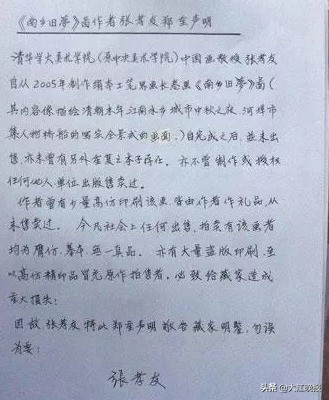 《南乡旧夢》畵作者张孝友郑重声明
清华大学美术学院（原中央工艺美术学院）中国画教授张孝友
自从2005年制作绢本工笔界画长卷画《南乡旧夢》畵（
其内容像描绘清朝末年江南水乡城市中秋之夜，河埠市
集人物桥船的喧闹全景式的画面，）自完成之后，並未出
售，亦未曾有另外重复之本子存在。亦不曾制作或授权
任何他人、单位出版售卖过。
作者曾有少量高仿印刷该画，皆由作者作礼品，从
未售卖过。今凡社会上任何出售，拍卖有该画者
均为赝仿、摹本，无一真品。亦有大量盗版印刷，至
以高仿精印品冒充原作拍售者，必致给藏家造成
重大损失！
因故，张孝友特此郑重声明敬告藏家明鉴，勿误
为要！
张孝友
头条@大江晚报